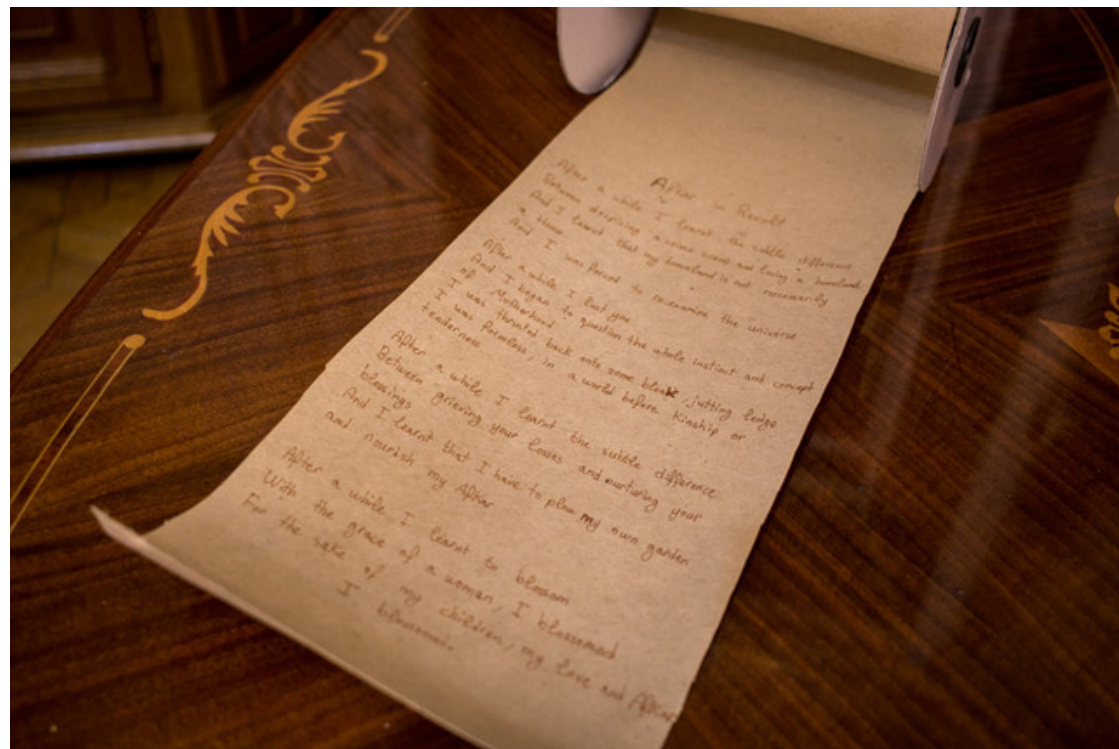 Afkar in Revolt
After a while I learnt the subtle difference
Between despising a crime scene and loving a homeland
And I learnt that my homeland is not necessarily
a Home
And I was forced to reexamine the universe
After a while I lost you
And I began to question the whole instinct and concept
of Motherhood
I was thrusted back onto some bleak, jutting ledge
I was formless, in a world before Kinship or
tenderness
After a while I learnt the subtle difference
Between grieving your losses and nurturing your
blessings
And I learnt that I have to plow my own garden
and nourish my Afkar
After a while I learnt to blossom
With the grace of a woman, I blossomed
For the sake of my children, my love and Afkar
I blossomed.